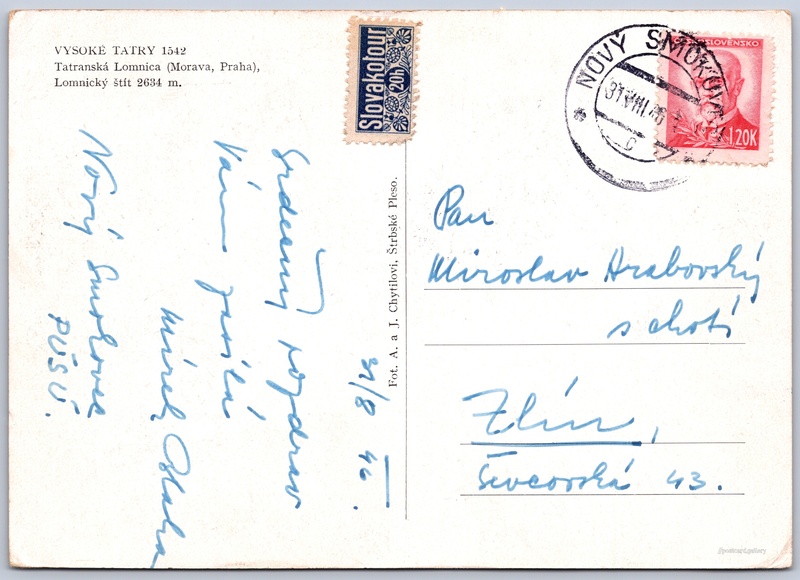 VYSOKÉ TATRY 1542
Tatranská Lomnica (Morava, Praha),
Lomnický štít 2634 m.
Slovakotour
20h
NOVÝ SMOKOVEC
31.VIII.46
ČESKOSLOVENSKO
1.20K
31/8 46.
Srdečný pozdrav
Vám zasílá
Mirek Blaha
Nový Smokovec
PÚSÚ.
Fot. A. a J. Chytilovi, Štrbské Pleso.
Pan
Miroslav Hrabovský
s chotí
Zlín,
Ševcovská 43.